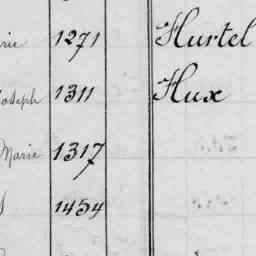 rie 1271 Hurtel
Joseph 1311 Hux
Marie 1317
1454